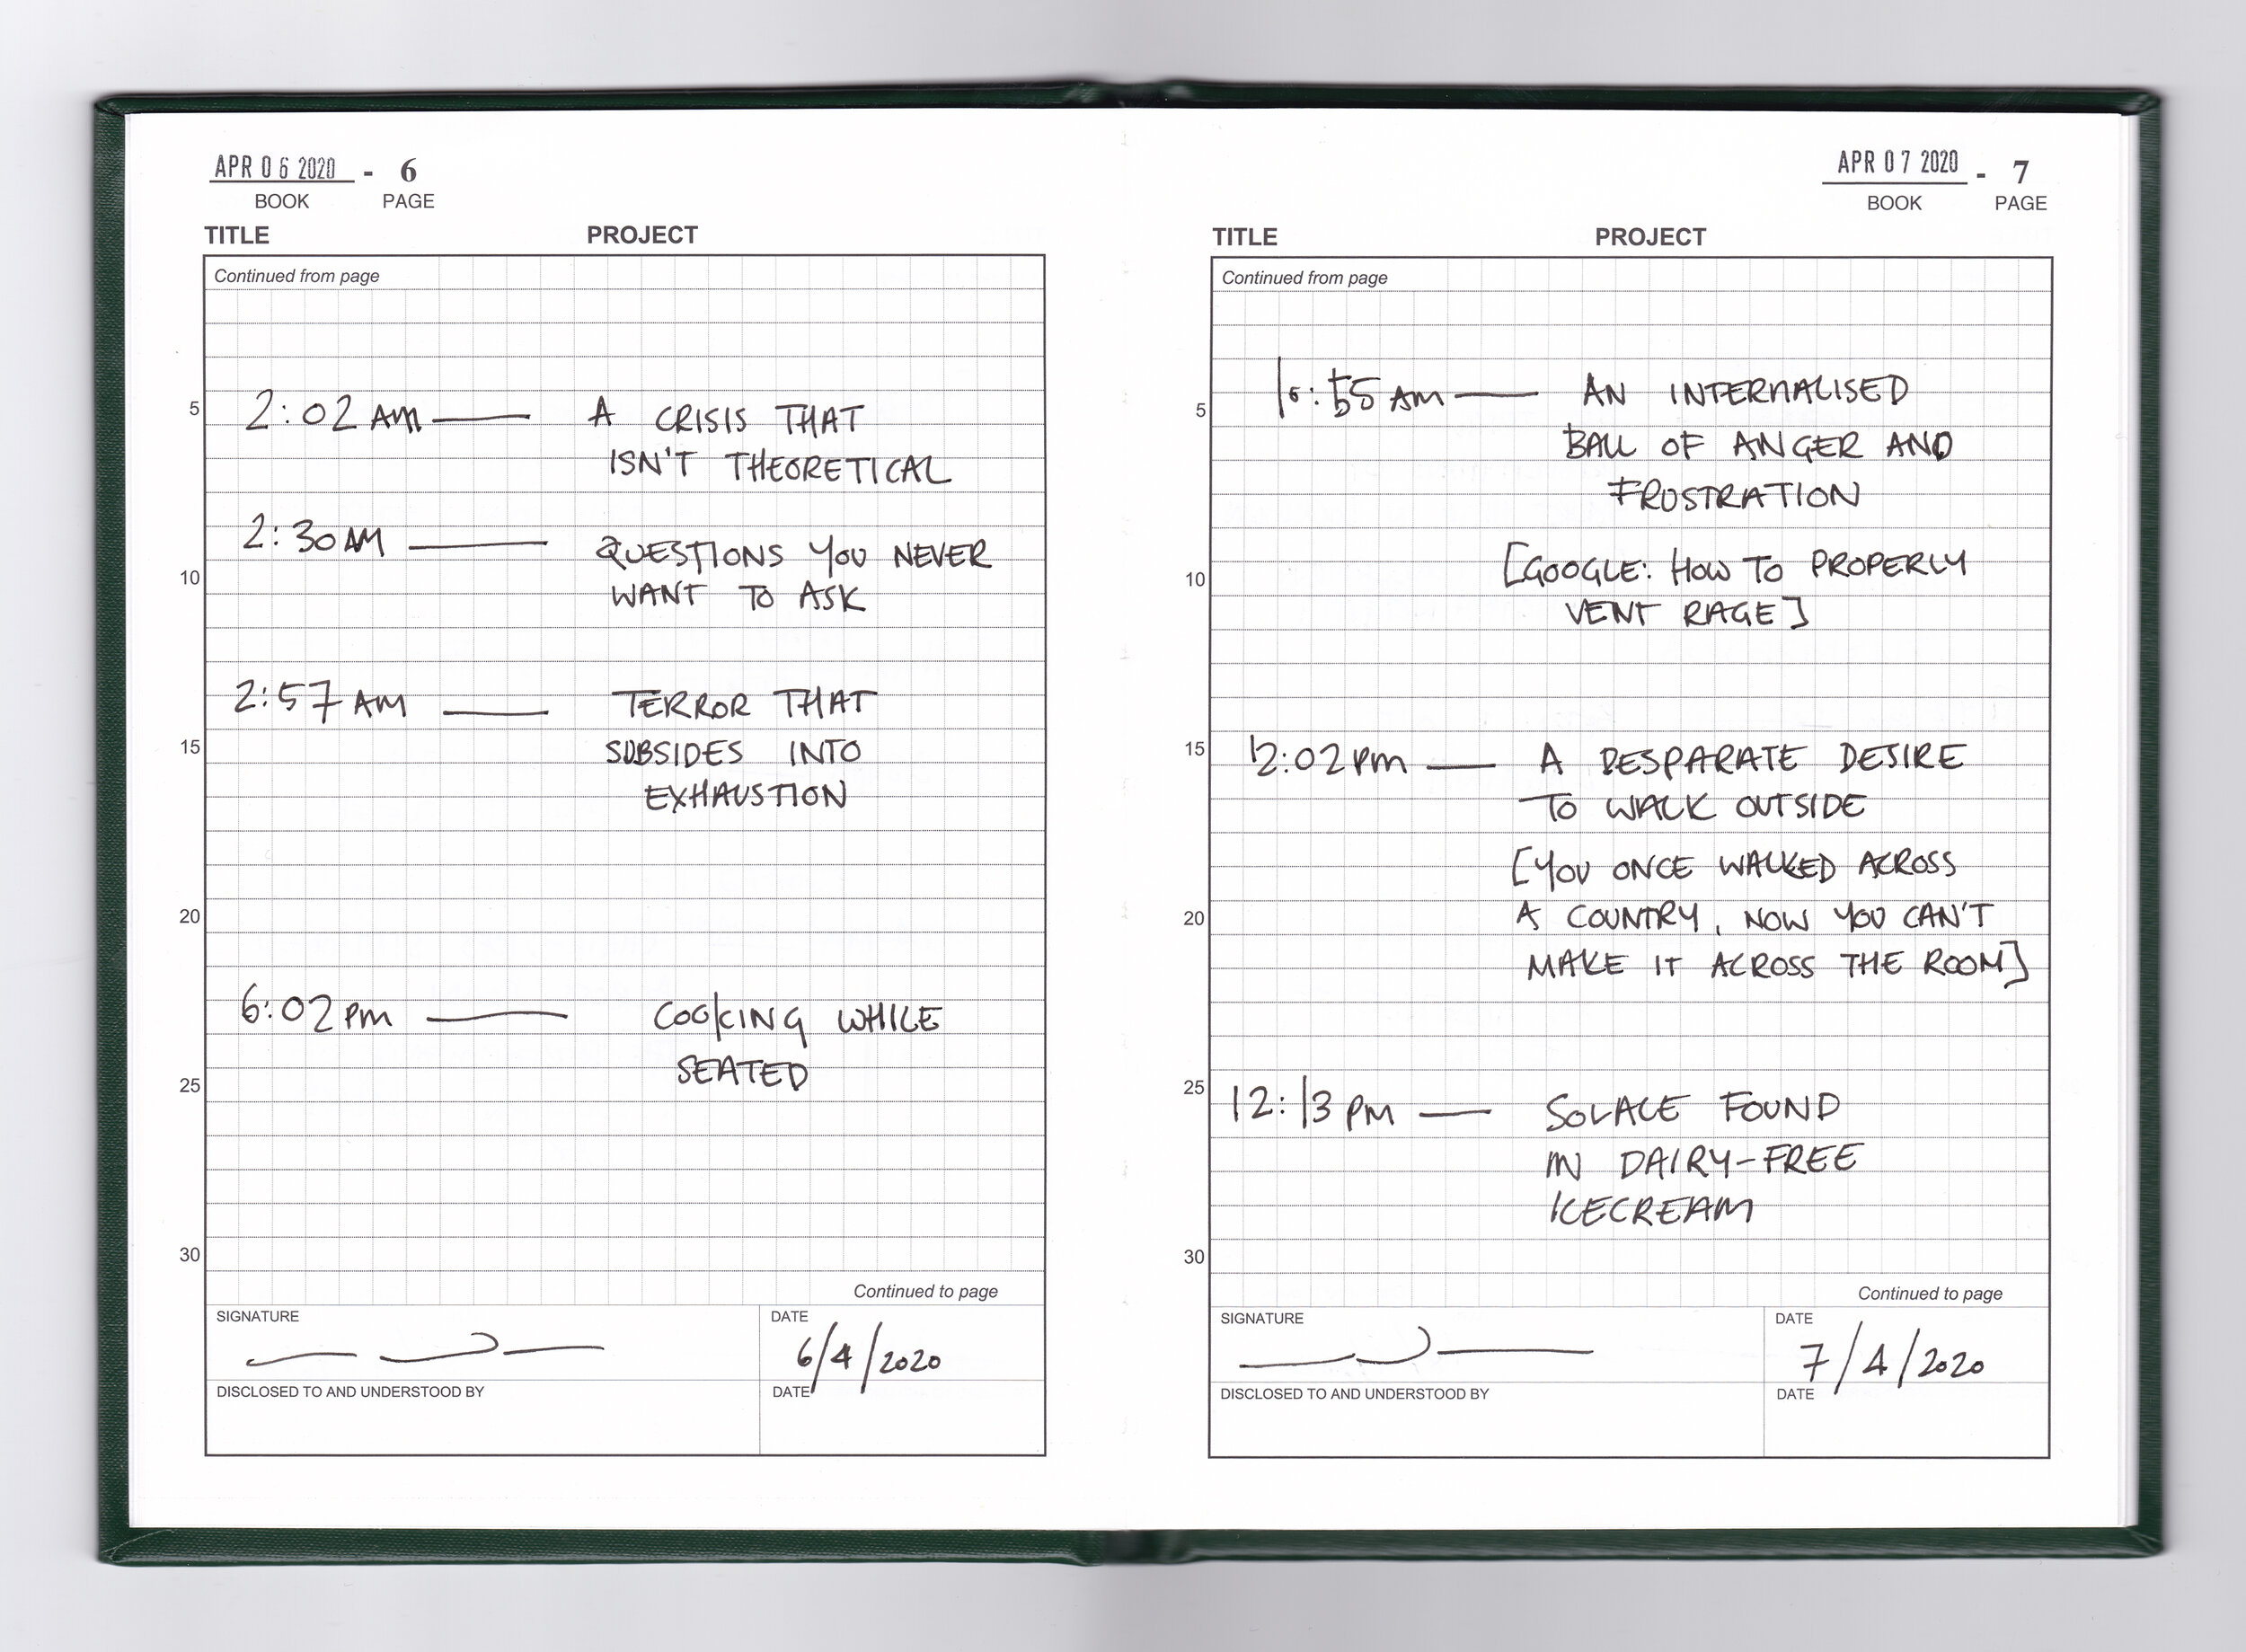 APR 06 2020 - 6
BOOK PAGE
TITLE PROJECT
Continued from page
5
2:02 AM — A CRISIS THAT
ISN'T THEORETICAL
2:30 AM — QUESTIONS YOU NEVER
10
WANT TO ASK
2:57 AM — TERROR THAT
15
SUBSIDES INTO
EXHAUSTION
20
6:02 PM — COOKING WHILE
SEATED
25
30
Continued to page
SIGNATURE DATE
6/4/2020
DISCLOSED TO AND UNDERSTOOD BY DATE
APR 07 2020 - 7
BOOK PAGE
TITLE PROJECT
Continued from page
5
10:55 AM — AN INTERNALISED
BALL OF ANGER AND
FRUSTRATION
10
[GOOGLE: HOW TO PROPERLY
VENT RAGE]
15
12:02 PM — A DESPARATE DESIRE
TO WALK OUTSIDE
[YOU ONCE WALKED ACROSS
20
A COUNTRY, NOW YOU CAN'T
MAKE IT ACROSS THE ROOM]
25
12:13 PM — SOLACE FOUND
IN DAIRY-FREE
ICECREAM
30
Continued to page
SIGNATURE DATE
7/4/2020
DISCLOSED TO AND UNDERSTOOD BY DATE